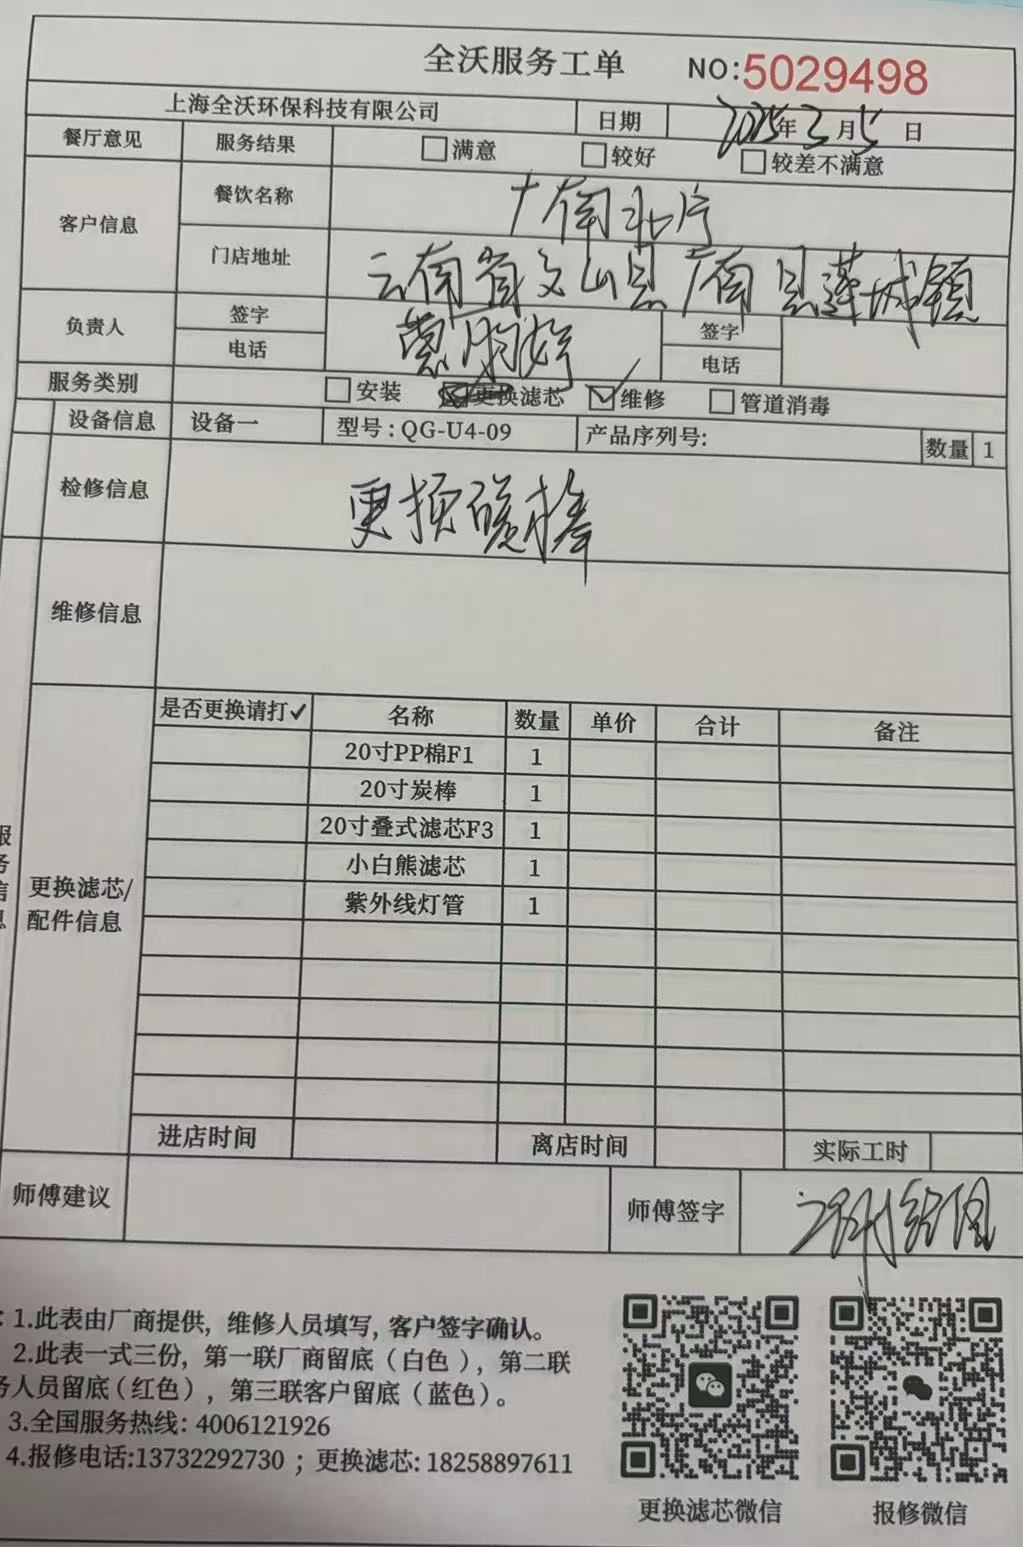 全沃服务工单 NO:5029498
上海全沃环保科技有限公司 日期 2025年3月5日
餐厅意见 服务结果 满意 较好 较差不满意
客户信息 餐饮名称 广南北片
门店地址 云南省文山县广南县莲城镇
负责人 签字 签字
电话 电话
服务类别 安装 更换滤芯 维修 管道消毒
设备信息 设备一 型号:QG-U4-09 产品序列号: 数量 1
检修信息 更换磁棒
维修信息
服务信息
更换滤芯/
配件信息
是否更换请打✓ 名称 数量 单价 合计 备注
20寸PP棉F1 1
20寸炭棒 1
20寸叠式滤芯F3 1
小白熊滤芯 1
紫外线灯管 1
进店时间 离店时间 实际工时
师傅建议 师傅签字
: 1.此表由厂商提供, 维修人员填写, 客户签字确认。
2.此表一式三份, 第一联厂商留底(白色), 第二联
务人员留底(红色), 第三联客户留底(蓝色)。
3.全国服务热线: 4006121926
4.报修电话:13732292730 ; 更换滤芯: 18258897611
更换滤芯微信 报修微信